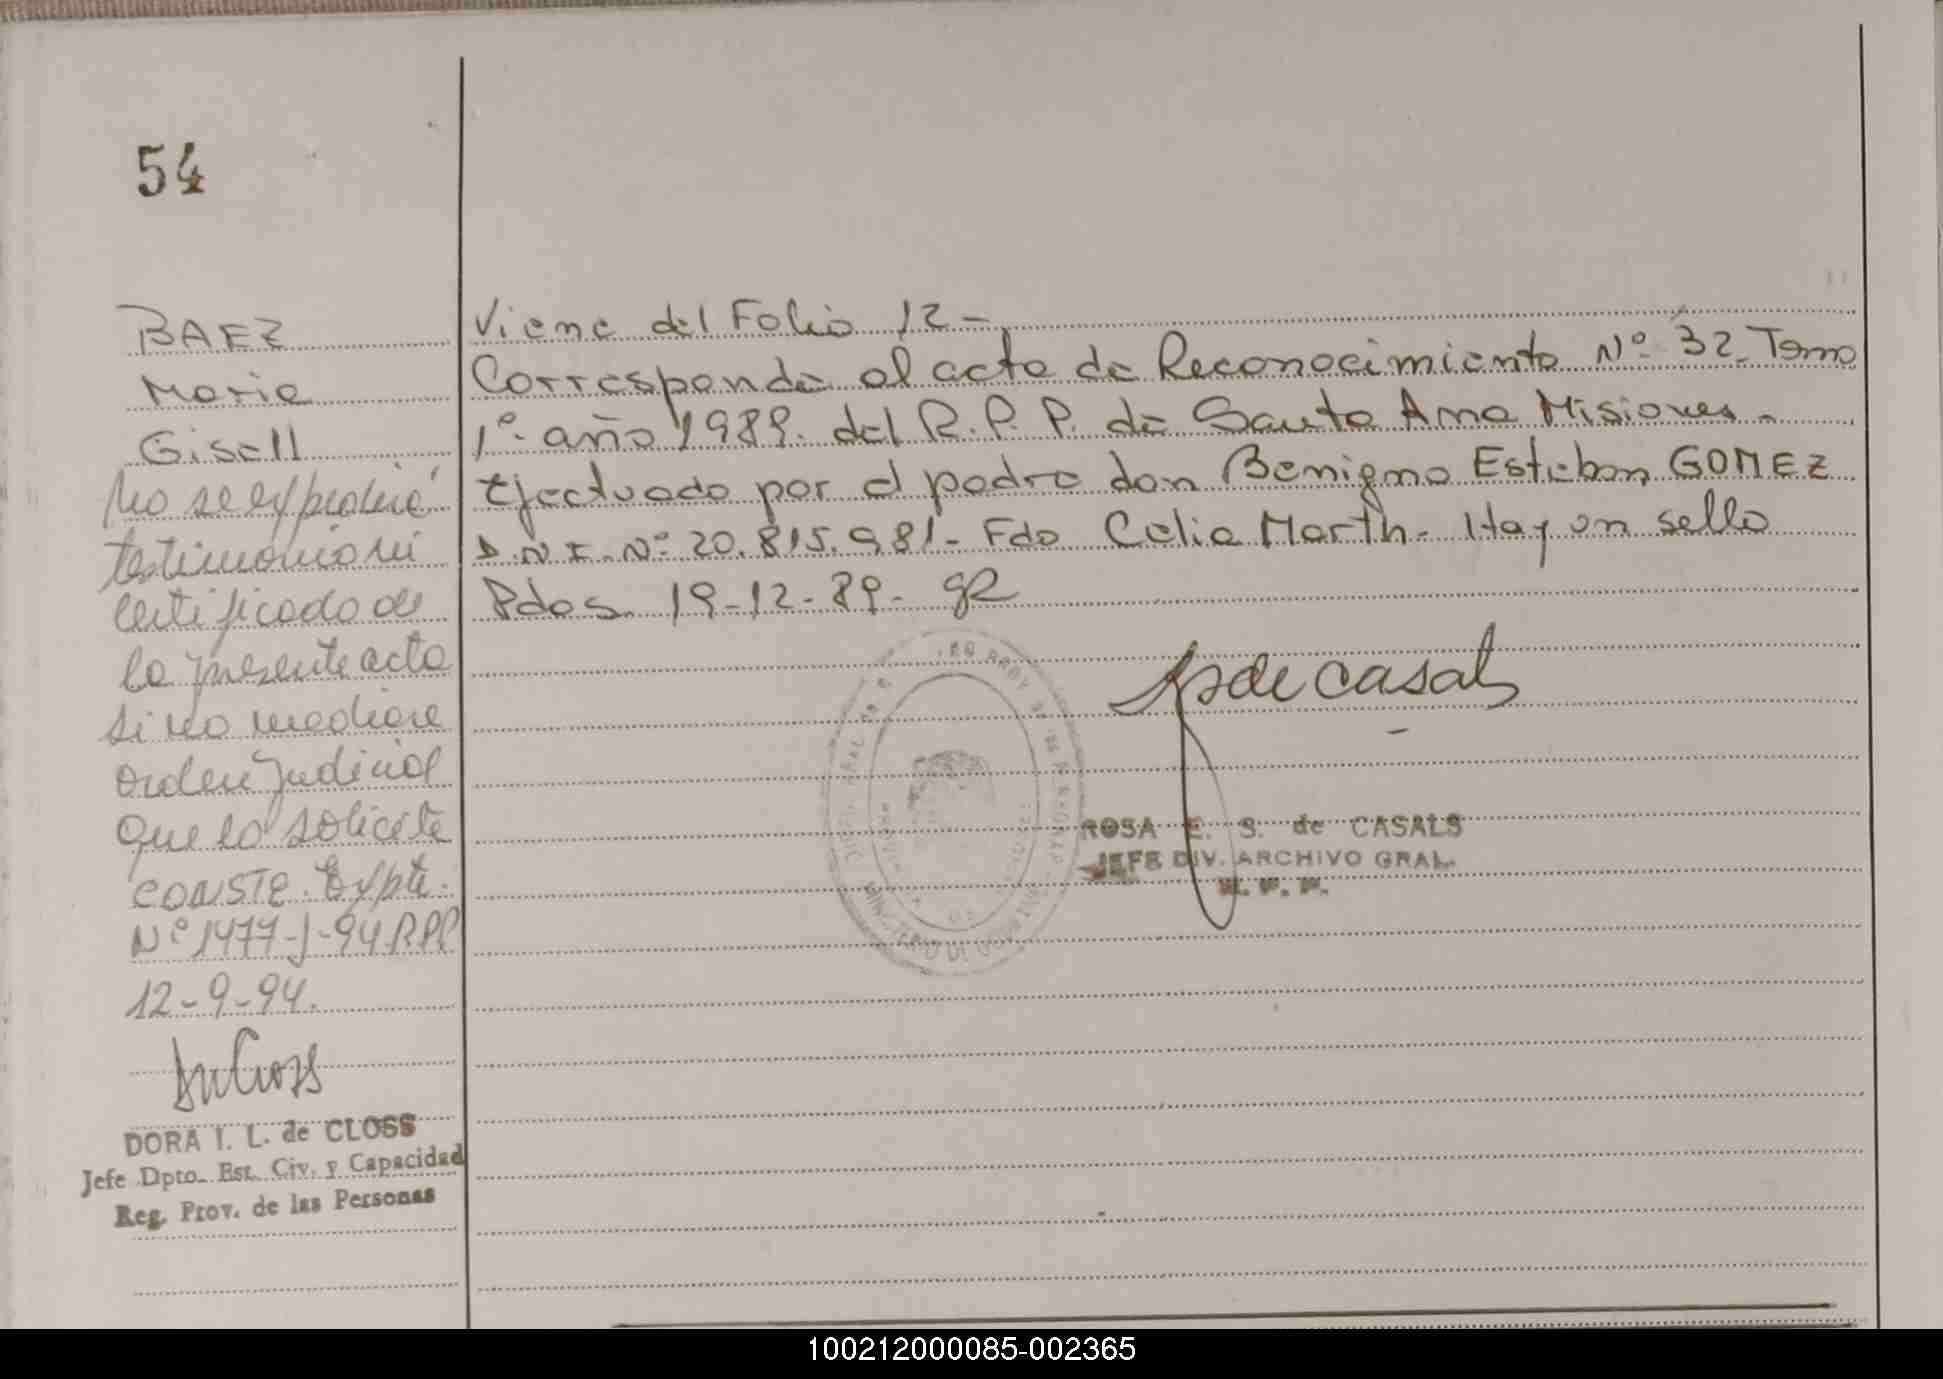 54
BAEZ
Maria
Gisell
No se expedirá
testimonio ni
certificado de
la presente acta
si no mediare
orden judicial
que lo solicite
CONSTE. Expte.
Nº 1477-J-94 R.P.P
12-9-94.
DORA I. L. de CLOSS
Jefe Dpto. Est. Civ. y Capacidad
Reg. Prov. de las Personas
Viene del Folio 12-
Corresponde al acta de Reconocimiento Nº 32 Tomo
1º. año 1989. del R.P.P. de Santa Ana Misiones-
Efectuado por el padre don Benigno Esteban GOMEZ
D.N.I. Nº 20.815.981- Fdo Celia Marth- Hay un sello
Pdas. 19-12-89-
de Casals
ROSA E. S. de CASALS
JEFE DIV. ARCHIVO GRAL.
R. P. P.
100212000085-002365